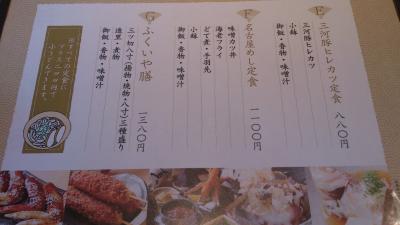 E 三河豚ヒレカツ定食 八八〇円
三河豚ヒレカツ
小鉢
御飯・香物・味噌汁
F 名古屋めし定食 一一〇〇円
味噌カツ丼
海老フライ
どて煮・手羽先
小鉢
御飯・香物・味噌汁
G ふくいや膳 一三八〇円
三ツ切八寸(揚物・焼物・八寸)三種盛り
造里・煮物
御飯・香物・味噌汁
すべての定食に
プラス二〇〇円で
小うどんできます。